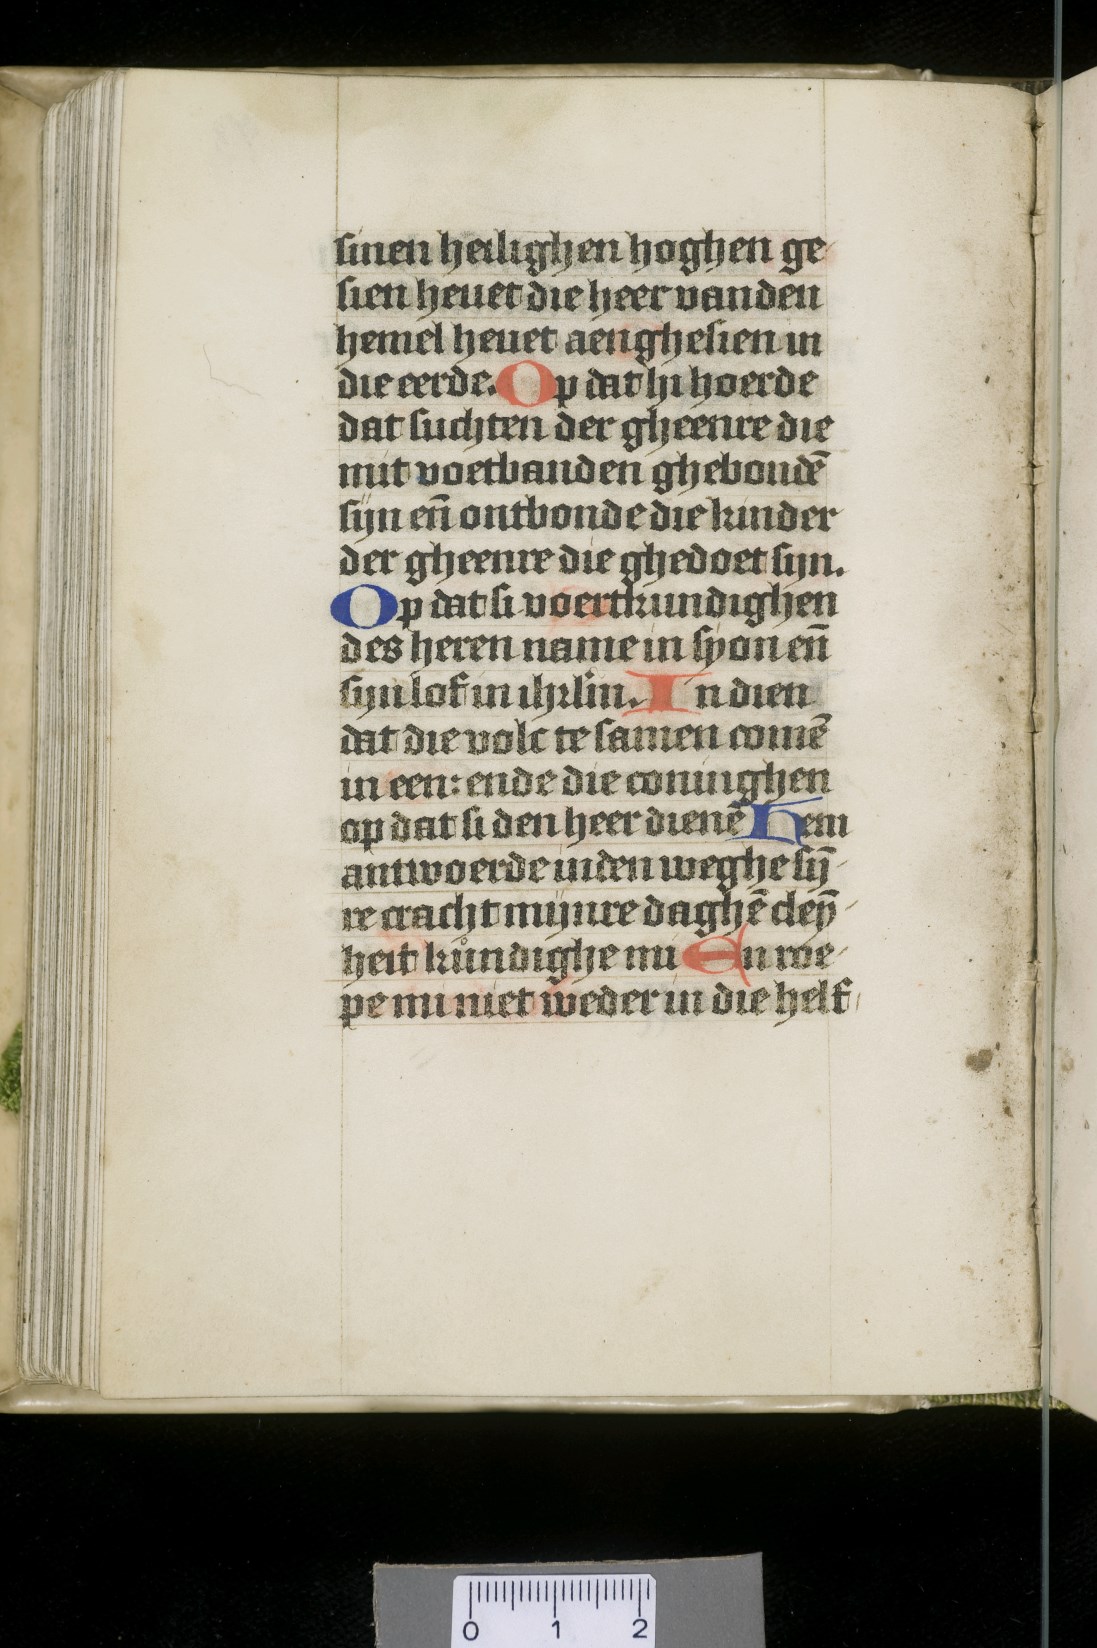 sinen heilighen hoghen ge
sien heuet die heer vanden
hemel heuet aenghesien in
die eerde. Op dat hi hoerde
dat suchten der gheenre die
mit voetbanden ghebondē
sijn en̄ ontbonde die kinder
der gheenre die ghedoet sijn.
Op dat si voertkundighen
des heren name in syon en̄
sijn lof in ihrl'm. In dien
dat die volc te samen comē
in een: ende die coninghen
op dat si den heer dienē Hem
antwoerde inden weghe sij̄-
re cracht mijnre daghē cleyn̄-
heit kůndighe mi En roe-
pe mi niet weder in die helf
0 1 2